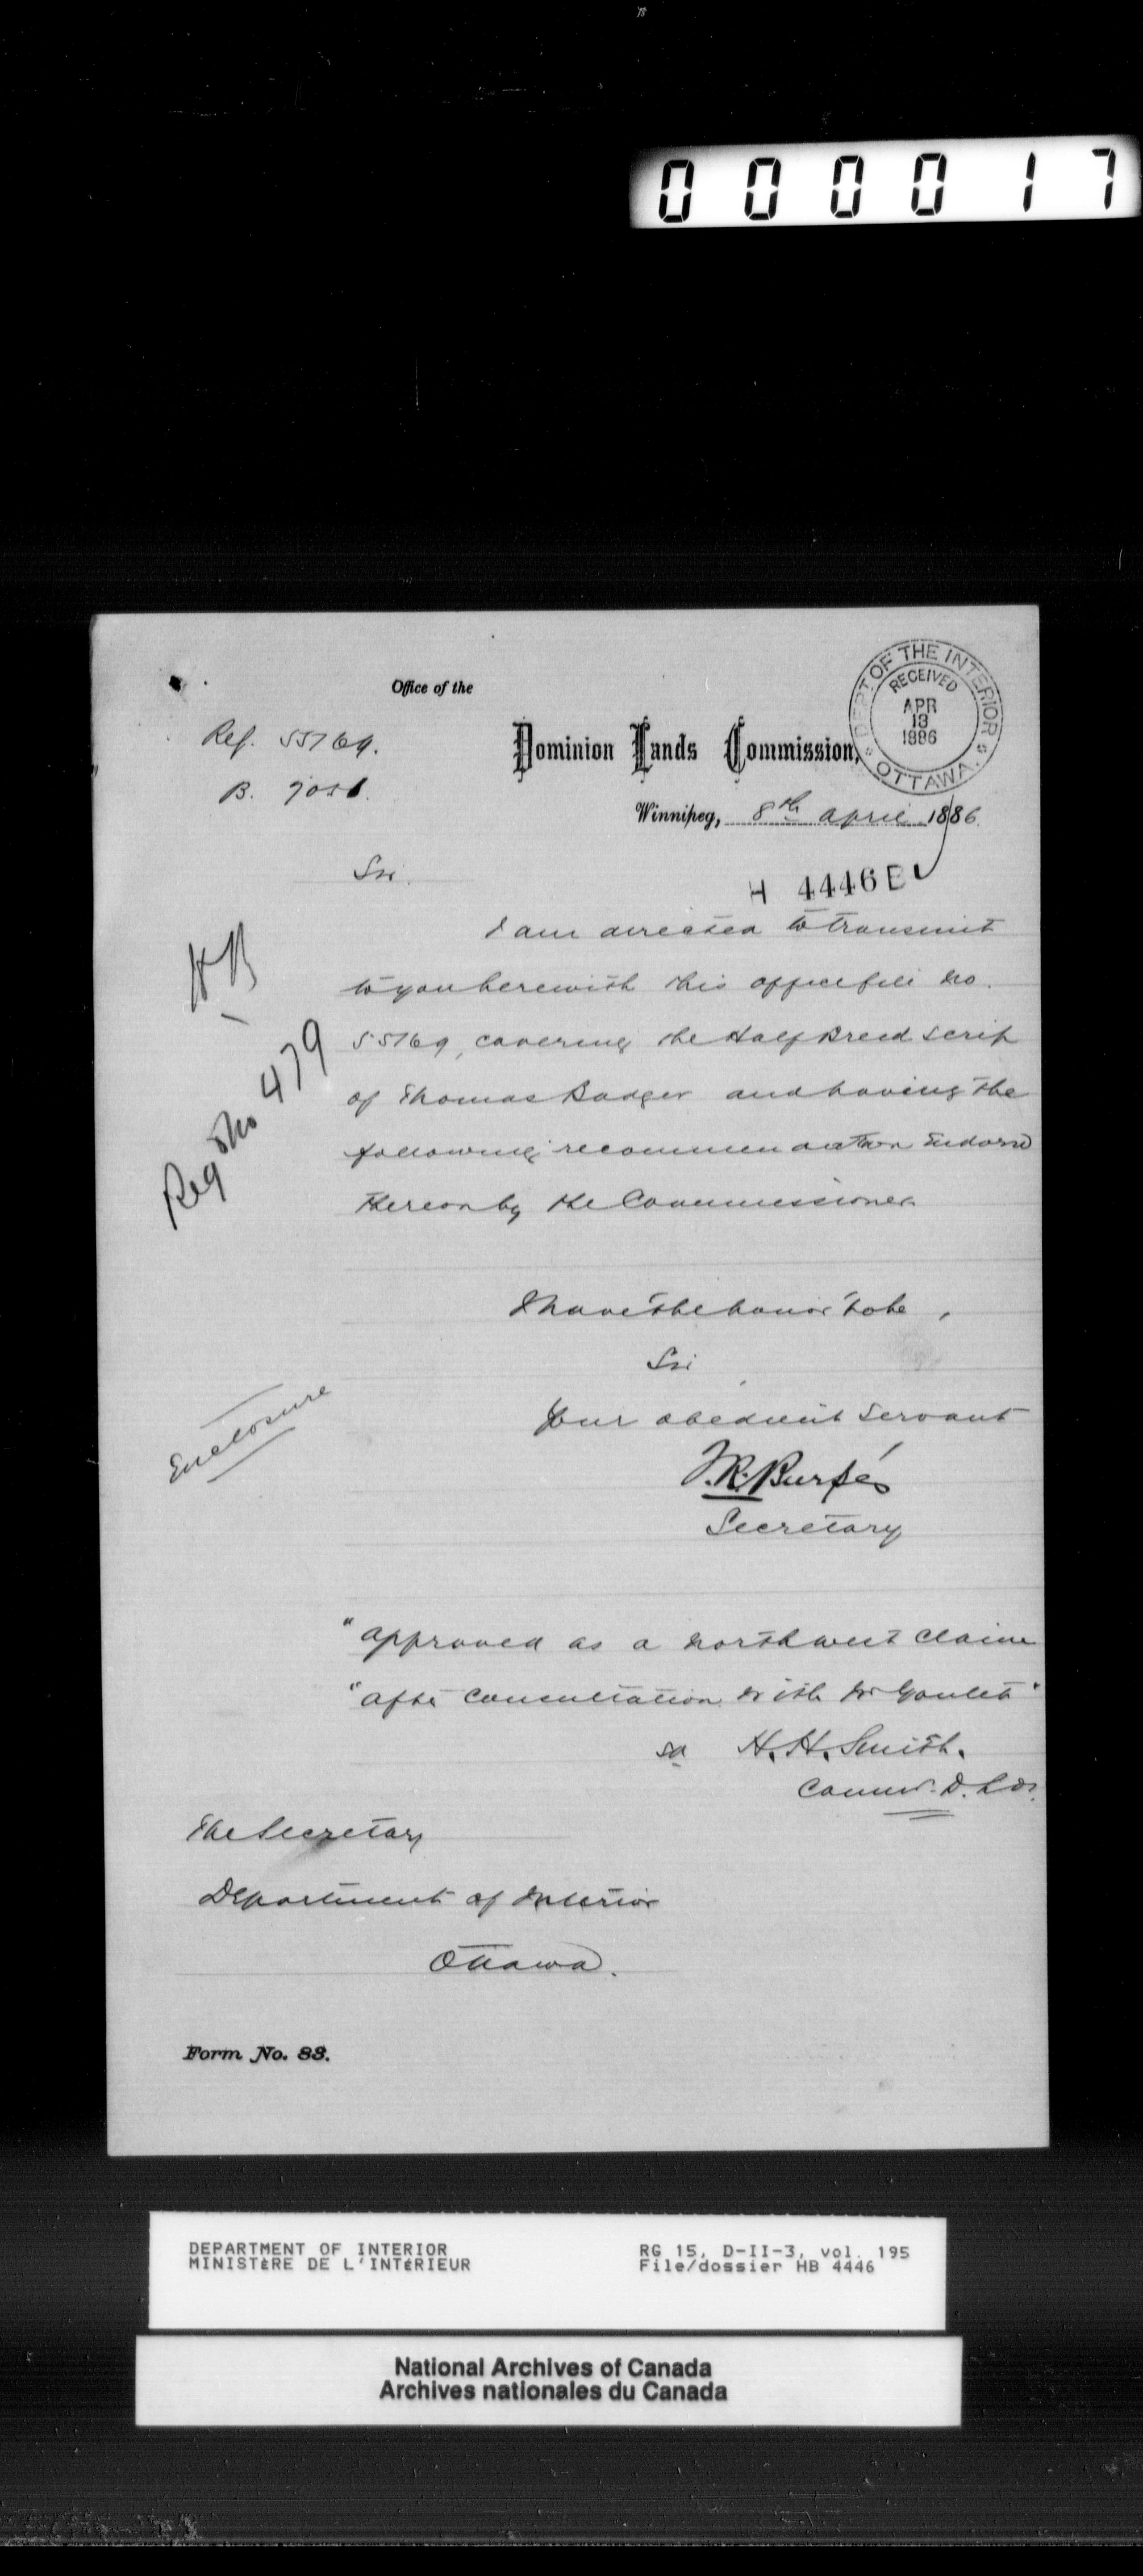 000017
Office of the
Dominion Lands Commission,
DEPT OF THE INTERIOR
RECEIVED
APR
13
1886
OTTAWA.
Ref. 55769.
B.
Winnipeg, 8th April 1886.
H 4446 B
Sir.
HB
Reg No 479
I am directed to transmit
to you herewith this office file No.
55769, covering the Half Breed Scrip
of Thomas Badger and having the
following recommendation Endorsed
thereon by the Commissioner
I have the honor to be,
Sir
Your obedient Servant
Enclosure
Secretary
"Approved as a Northwest Claim
"After Consultation with Mr Goulet"
H. H. Smith.
Commr. D. Lds.
The Secretary
Department of Interior
Ottawa.
Form No. 83.
DEPARTMENT OF INTERIOR
MINISTÈRE DE L'INTÉRIEUR
RG 15, D-II-3, vol. 195
File/dossier HB 4446
National Archives of Canada
Archives nationales du Canada